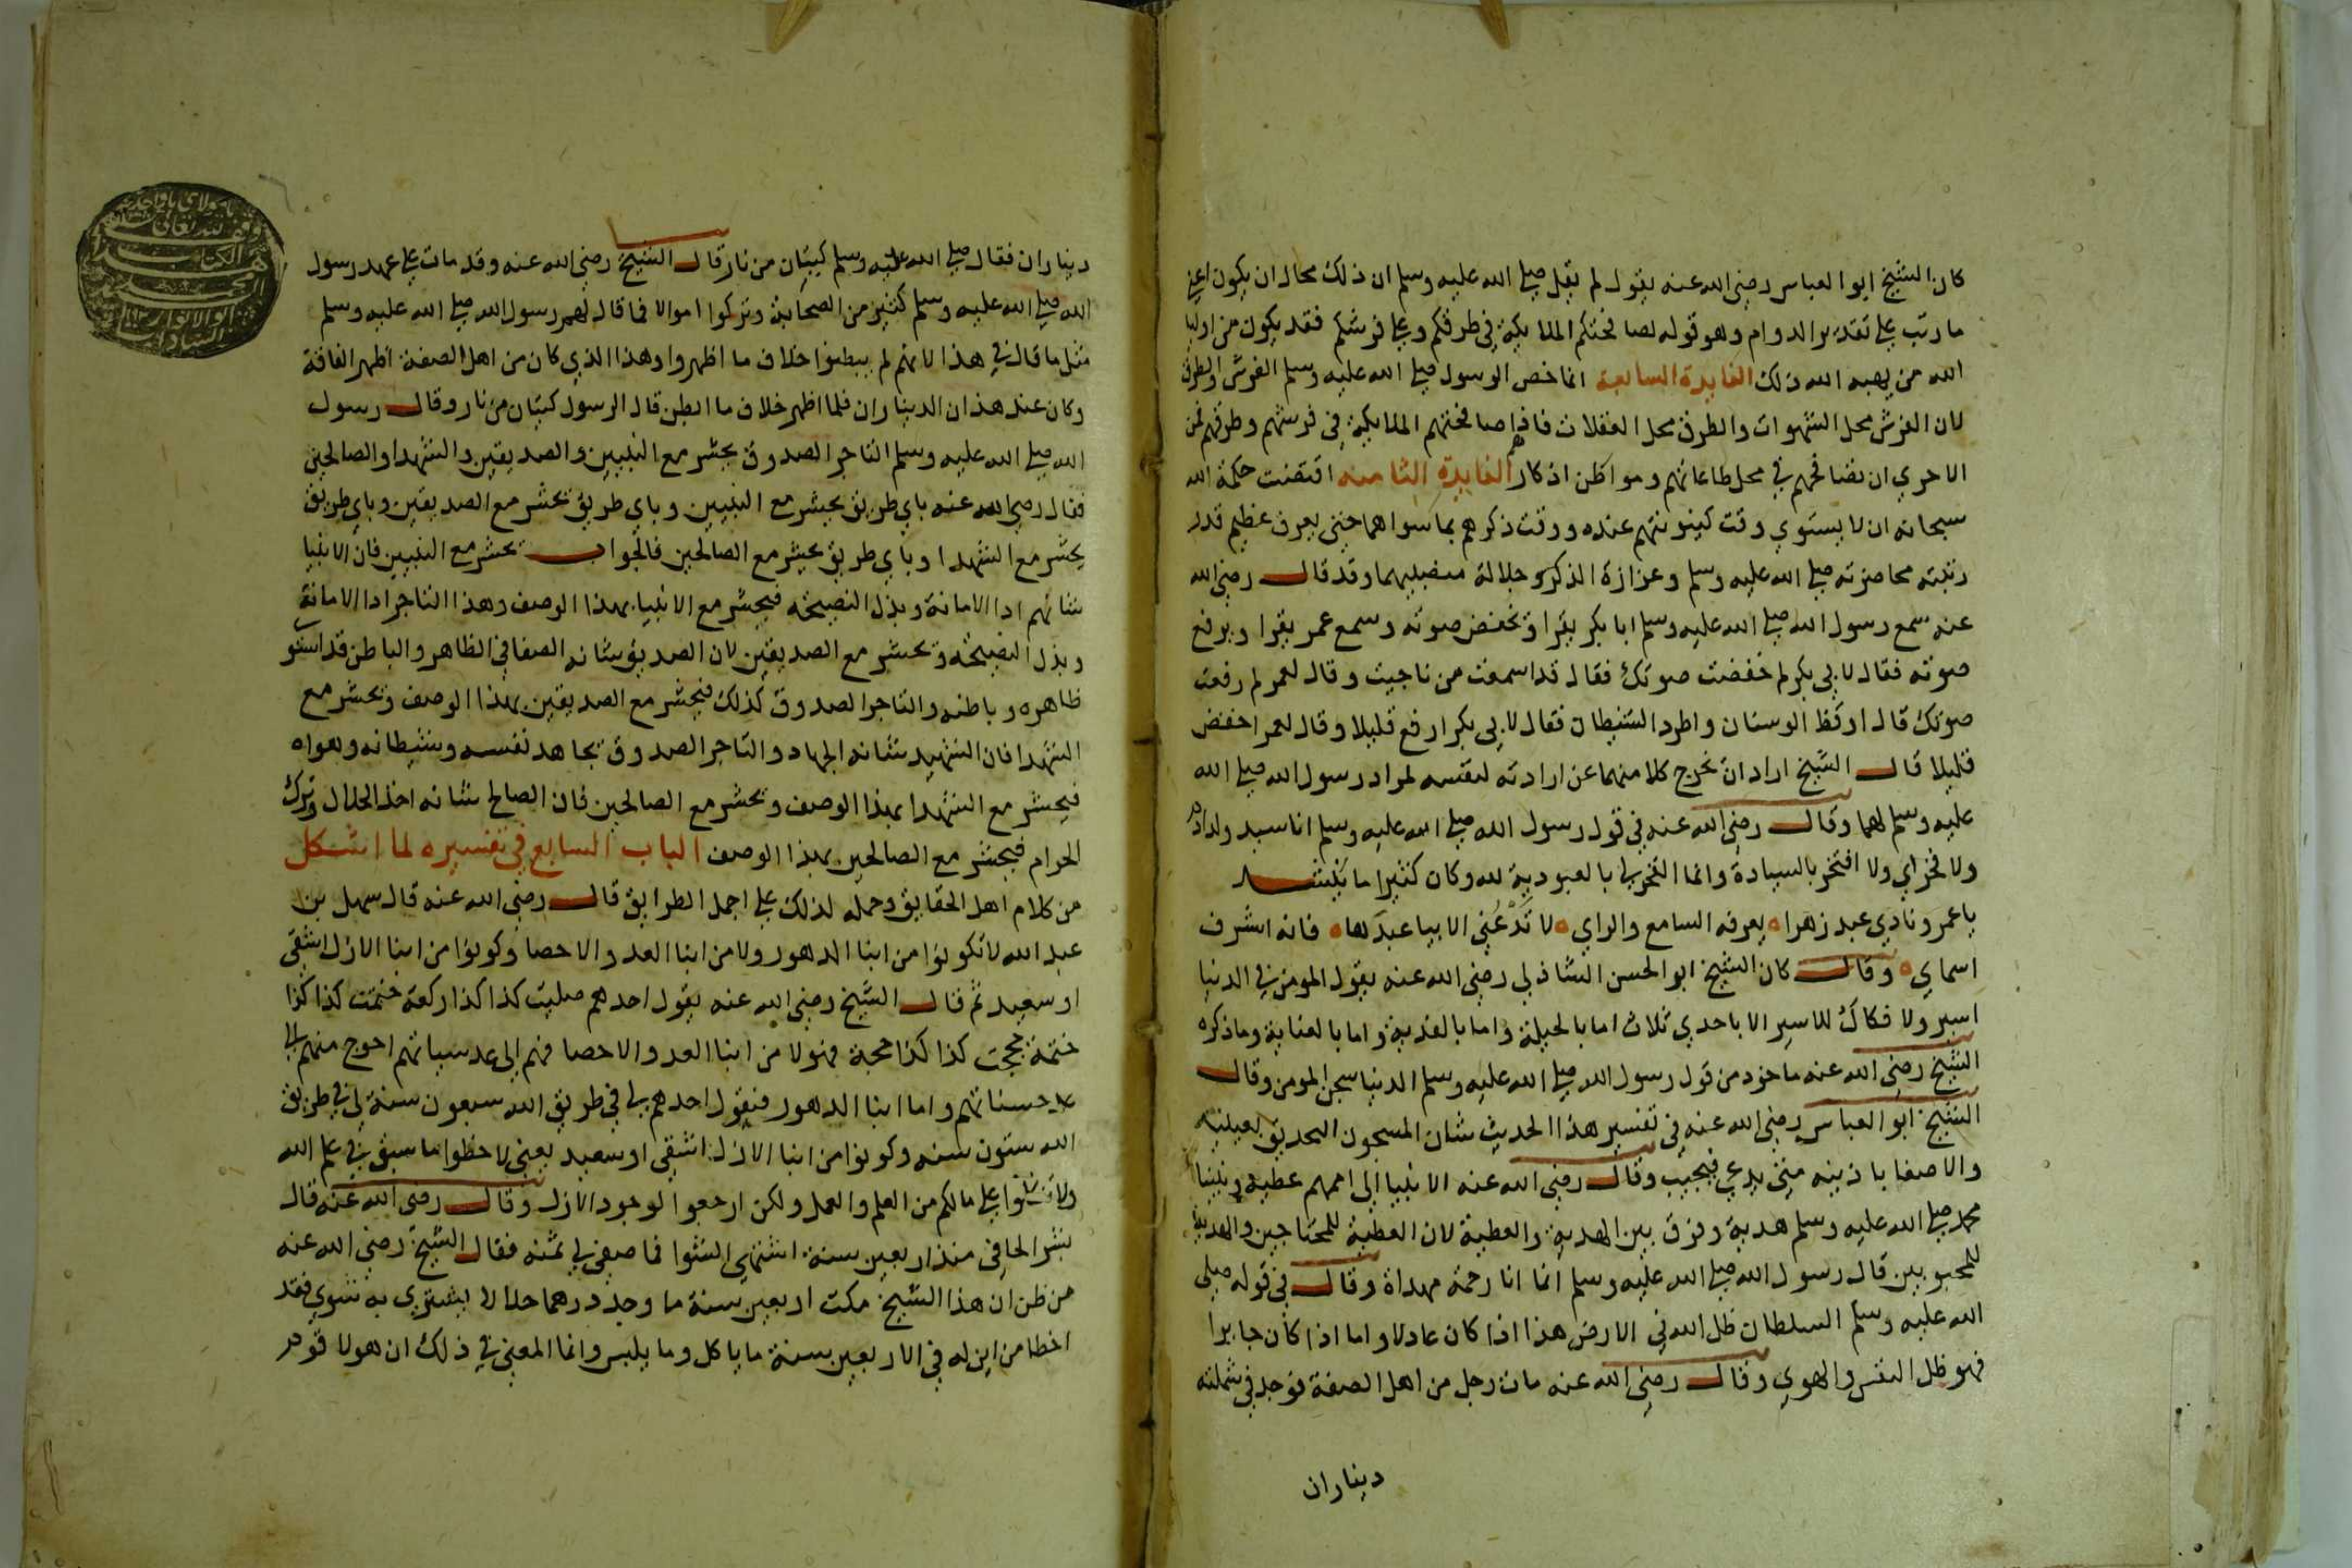 كان الشيخ ابو العباس رضي الله عنه يقول لم يقل صلي الله عليه وسلم ان ذلك محال ان يكون اعني
ما رتب علي تقدير الدوام وهو قوله لصافحتكم الملايكة في طرقكم وعلي فرشكم فقد يكون من اوليا
الله من يهبه الله ذلك الفايدة السابعة انما خص الرسول صلي الله عليه وسلم الفرش والطرق
لان الفرش محل الشهوات والطرق محل الغفلات فاذا صافحتهم الملايكة في فرشهم وطرقهم فمن
الاحري ان تصافحهم في محل طاعاتهم ومواطن اذكارهم الفايدة الثامنه اقتضت حكمة الله
سبحانه ان لا يستوي وقت كينونتهم عنده ووقت ذكرهم بما سواهما حتي يعرف عظيم قدر
رتبته محاضرته صلي الله عليه وسلم وعزازة الذكر وجلالة منصبيهما وقد قال رضي الله
عنه سمع رسول الله صلي الله عليه وسلم ابا بكر يقرا و يخفض صوته وسمع عمر يقرا ويرفع
صوته فقال لابي بكر لم خفضت صوتك فقال قد اسمعت من ناجيت وقال لعمر لم رفعت
صوتك قال اوقظ الوسنان واطرد الشيطان فقال لابي بكر ارفع قليلا وقال لعمر اخفض
قليلا قال الشيخ اراد ان يخرج كلا منهما عن ارادته لنفسه لمراد رسول الله صلي الله
عليه وسلم لهما وقال رضي الله عنه في قول رسول الله صلي الله عليه وسلم انا سيد ولد ادم
ولا فخر اي ولا افتخر بالسيادة وانما الفخر لي بالعبودية لله وكان كثيرا ما ينشد
يا عمرو نادي عبد زهرا ه يعرفه السامع والراي ه لا تدعني الا بيا عبدها ه فانه اشرف
اسماي ه وقال كان الشيخ ابو الحسن الشاذلي رضي الله عنه يقول المومن في الدنيا
اسير ولا فكاك للاسير الا باحدي ثلاث اما بالحيلة واما بالفدية واما بالعناية وما ذكره
الشيخ رضي الله عنه ماخوذ من قول رسول الله صلي الله عليه وسلم الدنيا سجن المومن وقال
الشيخ ابو العباس رضي الله عنه في تفسير هذا الحديث شان المسجون التحديق بعينيه
والاصغا باذنيه متي يدعي فيجيب وقال رضي الله عنه الانبيا الي اممهم عطية ونبينا
محمد صلي الله عليه وسلم هدية وفرق بين الهدية والعطية لان العطية للمحتاجين والهدية
للمحبوبين قال رسول الله صلي الله عليه وسلم انما انا رحمة مهداة وقال في قوله صلي
الله عليه وسلم السلطان ظل الله في الارض هذا اذا كان عادلا واما اذا كان جابرا
فهو ظل النفس والهوي وقال رضي الله عنه مات رجل من اهل الصفة فوجد في شملته
ديناران
ديناران فقال صلي الله عليه وسلم كيتان من نار قال الشيخ رضي الله عنه وقد مات علي عهد رسول
الله صلي الله عليه وسلم كثير من الصحابة وتركوا اموالا فما قال لهم رسول الله صلي الله عليه وسلم
مثل ما قال في هذا لانهم لم يبطنوا خلاف ما اظهروا وهذا الذي كان من اهل الصفة اظهر الفاقة
وكان عنده هذان الديناران فلما اظهر خلاف ما ابطن قال الرسول كيتان من نار وقال رسول
الله صلي الله عليه وسلم التاجر الصدوق يحشر مع النبيين والصديقين والشهدا والصالحين
فقال رضي الله عنه باي طريق يحشر مع النبيين وباي طريق يحشر مع الصديقين وباي طريق
يحشر مع الشهدا وباي طريق يحشر مع الصالحين فالجواب يحشر مع النبيين فان الانبيا
شانهم ادا الامانة وبذل النصيحة فيحشر مع الانبيا بهذا الوصف وهذا التاجر ادا الامانة
وبذل النصيحة ويحشر مع الصديقين لان الصديق شانه الصفا في الظاهر والباطن قد استو
ظاهره وباطنه والتاجر الصدوق كذلك فيحشر مع الصديقين بهذا الوصف ويحشر مع
الشهدا فان الشهيد شانه الجهاد والتاجر الصدوق يجاهد نفسه وشيطانه وهواه
فيحشر مع الشهدا بهذا الوصف ويحشر مع الصالحين فان الصالح شانه اخذ الحلال وترك
الحرام فيحشر مع الصالحين بهذا الوصف الباب السابع في تفسيره لما اشكل
من كلام اهل الحقايق وحمله لذلك علي اجمل الطرايق قال رضي الله عنه قال سهل بن
عبد الله لا تكونوا من ابنا الدهور ولا من ابنا العدد والاحصا وكونوا من ابنا الازل اشقي
او سعيد ثم قال الشيخ رضي الله عنه يقول احدهم صليت كذا كذا ركعة ختمت كذا كذا
ختمة حججت كذا كذا حجة فهولا من ابنا العدد والاحصا فهم الي عد سياتهم احوج منهم الي
عد حسناتهم واما ابنا الدهور فيقول احدهم لي في طريق الله سبعون سنة لي في طريق
الله ستون سنه وكونوا من ابنا الازل اشقي او سعيد يعني لاحظوا ما سبق في علم الله
ولا علي مالكم من العلم والعمل ولكن ارجعوا لوجود الازل وقال رضي الله عنه قال
بشر الحافي منذ اربعين سنة اشتهي الشوا فما صفي لي ثمنه فقال الشيخ رضي الله عنه
من ظن ان هذا الشيخ مكث اربعين سنة ما وجد درهما حلالا يشتري به شوي فقد
اخطا من اين له في الاربعين سنة ما ياكل وما يلبس وانما المعني في ذلك ان هولا قوم